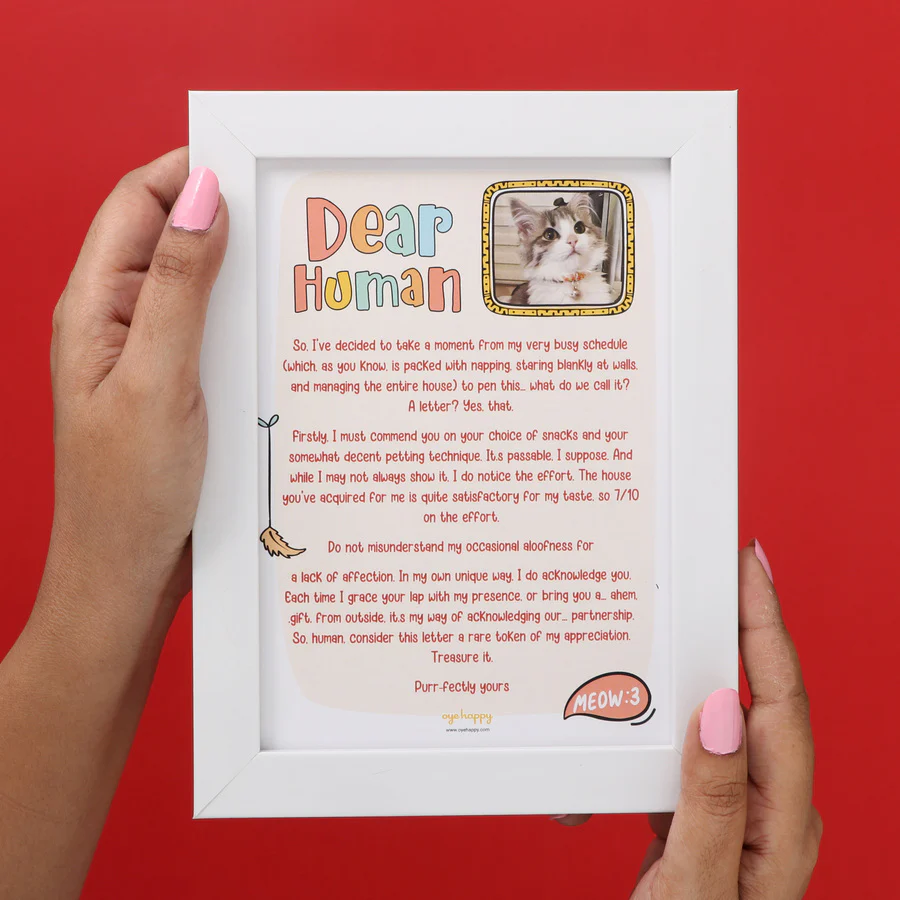 Dear
Human
So, I've decided to take a moment from my very busy schedule
(which, as you know, is packed with napping, staring blankly at walls,
and managing the entire house) to pen this... what do we call it?
A letter? Yes, that.
Firstly, I must commend you on your choice of snacks and your
somewhat decent petting technique. It.s passable, I suppose. And
while I may not always show it, I do notice the effort. The house
you've acquired for me is quite satisfactory for my taste, so 7/10
on the effort.
Do not misunderstand my occasional aloofness for
a lack of affection. In my own unique way, I do acknowledge you.
Each time I grace your lap with my presence, or bring you a... ahem,
.gift. from outside, it.s my way of acknowledging our... partnership.
So, human, consider this letter a rare token of my appreciation.
Treasure it.
Purr-fectly yours
MEOW:3
oye happy
www.oyehappy.com